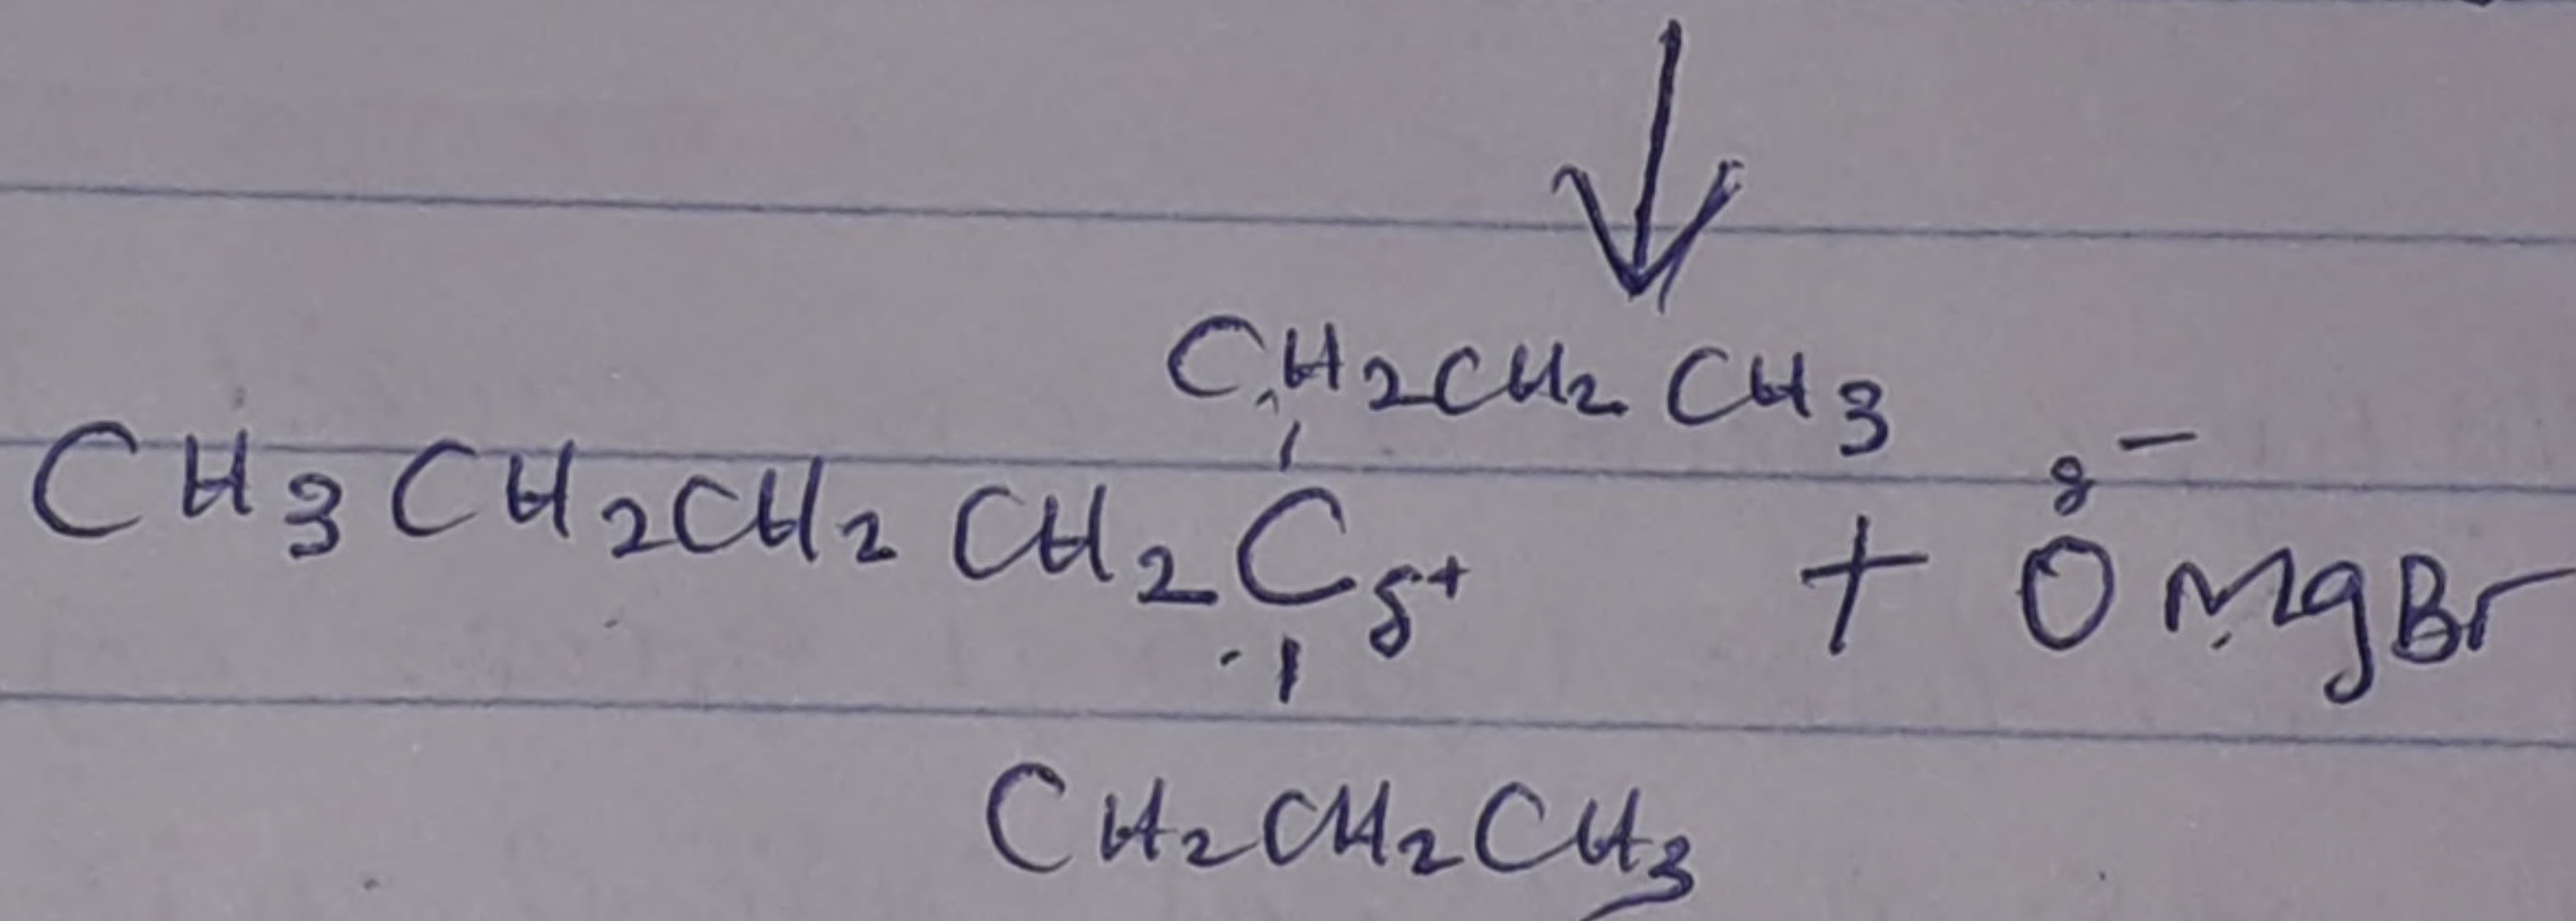 CH2CH2CH3
CH3CH2CH2CH2Cδ+ + Oδ−MgBr
CH2CH2CH3